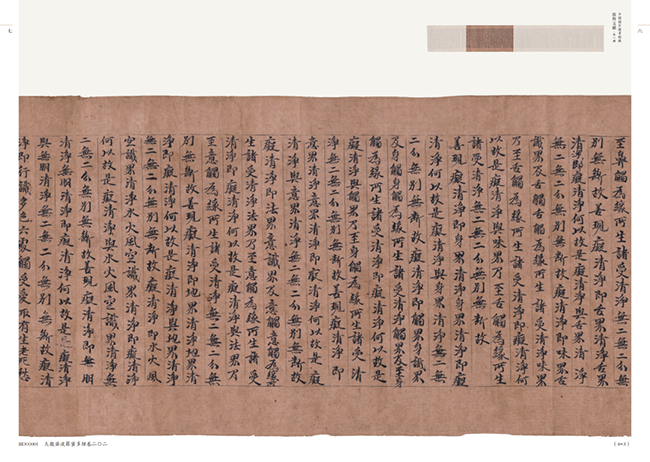 至鼻觸為緣所生諸受清淨無二無二分無
別無斷故善現癡清淨即舌界清淨舌界
清淨即癡清淨何以故是癡清淨與舌界清淨
無二無二分無別無斷故癡清淨即味界舌
識界及舌觸舌觸為緣所生諸受清淨味界
乃至舌觸為緣所生諸受清淨即癡清淨何
以故是癡清淨與味界乃至舌觸為緣所生
諸受清淨無二無二分無別無斷故
善現癡清淨即身界清淨身界清淨即癡
清淨何以故是癡清淨與身界清淨無二無
二分無別無斷故癡清淨即觸界身識界
及身觸身觸為緣所生諸受清淨觸界乃至身
觸為緣所生諸受清淨即癡清淨何以故是
癡清淨與觸界乃至身觸為緣所生諸受清
淨無二無二分無別無斷故善現癡清淨即
意界清淨意界清淨即癡清淨何以故是癡
清淨與意界清淨無二無二分無別無斷故
癡清淨即法界意識界及意觸意觸為緣所
生諸受清淨法界乃至意觸為緣所生諸受
清淨即癡清淨何以故是癡清淨與法界乃
至意觸為緣所生諸受清淨無二無二分無
別無斷故善現癡清淨即地界清淨地界清
淨即癡清淨何以故是癡清淨與地界清淨
無二無二分無別無斷故癡清淨即水火風
空識界清淨水火風空識界清淨即癡清淨
何以故是癡清淨與水火風空識界清淨無
二無二分無別無斷故善現癡清淨即無明
清淨無明清淨即癡清淨何以故是癡清淨
與無明清淨無二無二分無別無斷故癡清
淨即行識名色六處觸受愛取有生老死愁
大般若波羅蜜多經卷二〇二
七
六